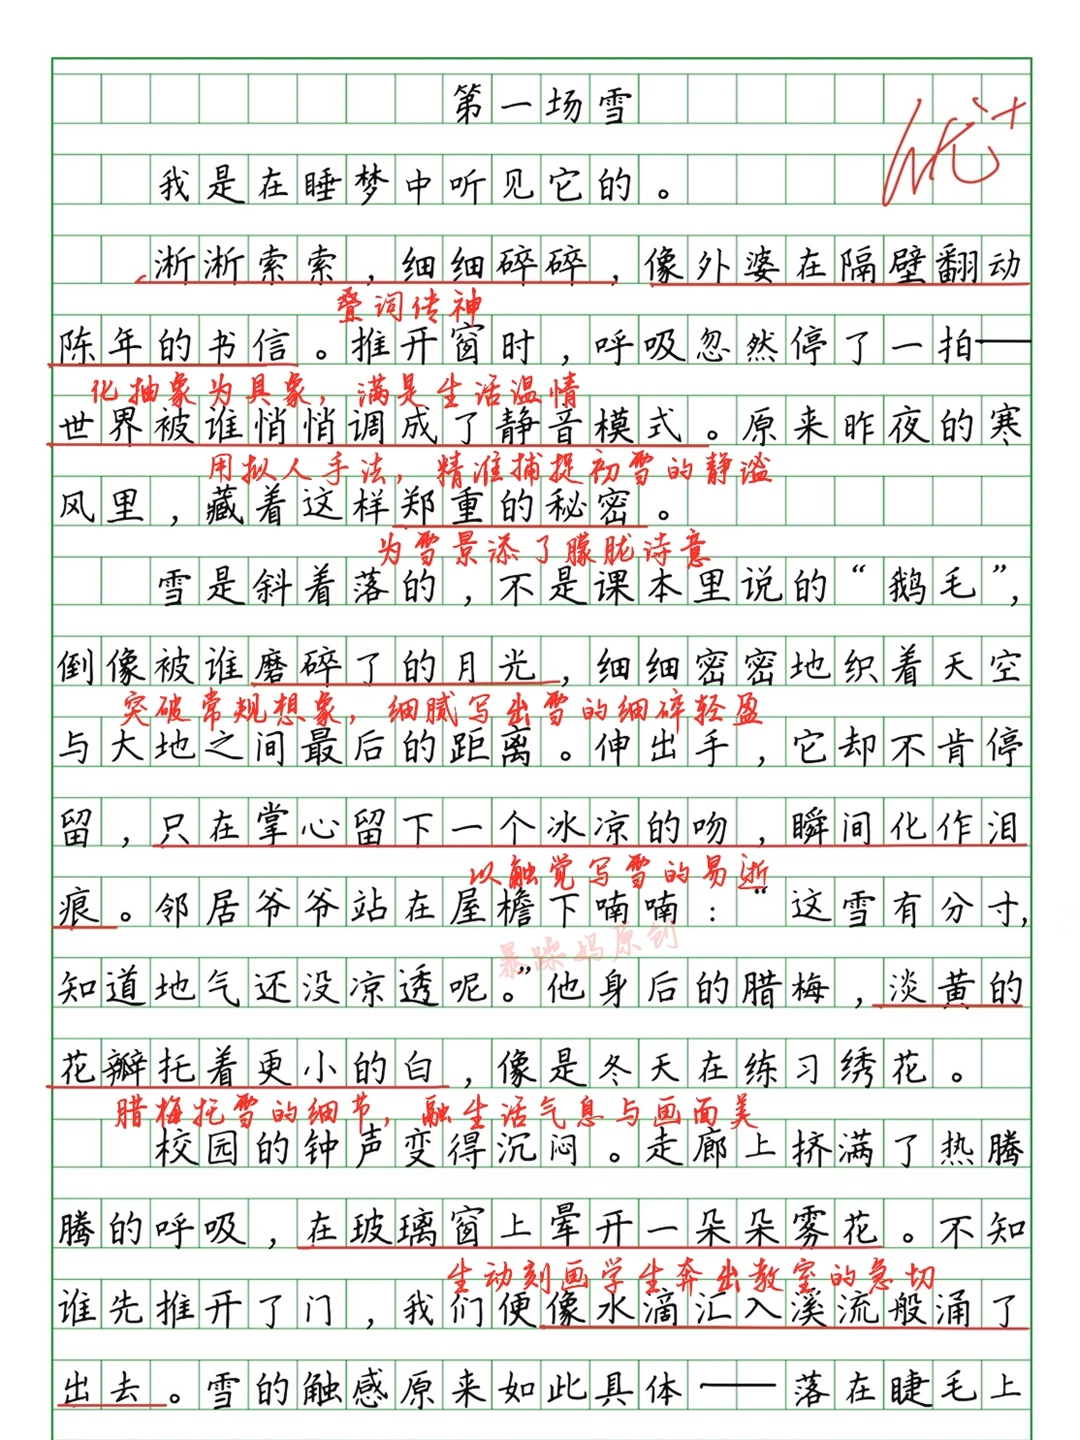 第一场雪
优+
我是在睡梦中听见它的。
淅淅索索，细细碎碎，像外婆在隔壁翻动
叠词传神
陈年的书信。推开窗时，呼吸忽然停了一拍——
化抽象为具象，满是生活温情
世界被谁悄悄调成了静音模式。原来昨夜的寒
用拟人手法，精准捕捉初雪的静谧
风里，藏着这样郑重的秘密。
为雪景添了朦胧诗意
雪是斜着落的，不是课本里说的“鹅毛”，
倒像被谁磨碎了的月光，细细密密地织着天空
突破常规想象，细腻写出雪的细碎轻盈
与大地之间最后的距离。伸出手，它却不肯停
留，只在掌心留下一个冰凉的吻，瞬间化作泪
以触觉写雪的易逝
痕。邻居爷爷站在屋檐下喃喃：“这雪有分寸，
暴躁妈原创
知道地气还没凉透呢。”他身后的腊梅，淡黄的
花瓣托着更小的白，像是冬天在练习绣花。
腊梅托雪的细节，融生活气息与画面美
校园的钟声变得沉闷。走廊上挤满了热腾
腾的呼吸，在玻璃窗上晕开一朵朵雾花。不知
生动刻画学生奔出教室的急切
谁先推开了门，我们便像水滴汇入溪流般涌了
出去。雪的触感原来如此具体——落在睫毛上